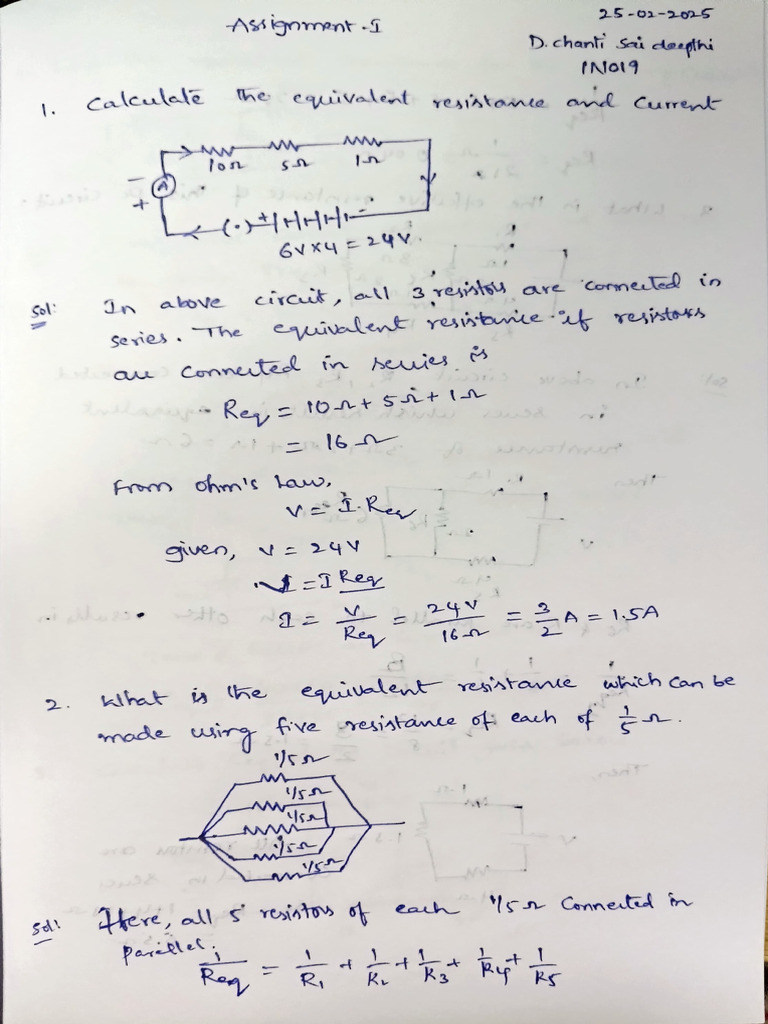 Assignment-I
25-02-2025
D. chanti sai deepthi
IN019
1. Calculate the equivalent resistance and current
10Ω 5Ω 1Ω
A
- +
(.) + -
6V x 4 = 24V.
Sol: In above circuit, all 3 resistors are connected in
series. The equivalent resistance if resistors
are connected in series is
Req = 10Ω + 5Ω + 1Ω
= 16Ω
From ohm's Law,
V = I. Req
given, V = 24V
V = I Req
I = V/Req = 24V/16Ω = 3/2 A = 1.5A
2. What is the equivalent resistance which can be
made using five resistance of each of 1/5 Ω.
1/5Ω
1/5Ω
1/5Ω
1/5Ω
1/5Ω
Sol: Here, all 5 resistors of each 1/5 Ω Connected in
parellel.
1/Req = 1/R1 + 1/R2 + 1/R3 + 1/R4 + 1/R5